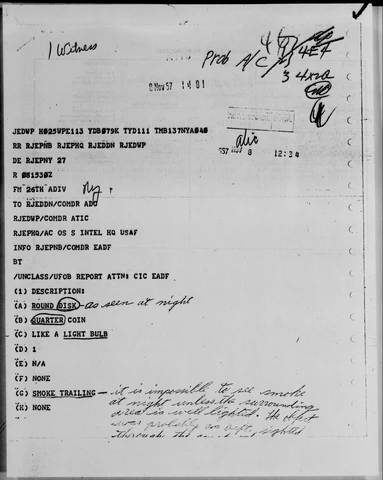 1 Witness
Prob A/C
8 Nov 57 14 01
'57 NOV 8 12:34
JEDWP H025WPE113 YDB079K TYD111 TMB137NYA040
RR RJEPNB RJEPHQ RJEDDN RJEDWP
DE RJEPNY 27
R 081530Z
FM 26TH ADIV
TO RJEDDN/COMDR ADC
RJEDWP/COMDR ATIC
RJEPHQ/AC OS S INTEL HQ USAF
INFO RJEPNB/COMDR EADF
BT
/UNCLASS/UFOB REPORT ATTN: CIC EADF
(1) DESCRIPTION:
(A) ROUND DISK - as seen at night
(B) QUARTER COIN
(C) LIKE A LIGHT BULB
(D) 1
(E) N/A
(F) NONE
(G) SMOKE TRAILING - it is impossible to see smoke
at night unless the surrounding
area is well lighted. The object
(H) NONE
was probably an acft, sighted
through the